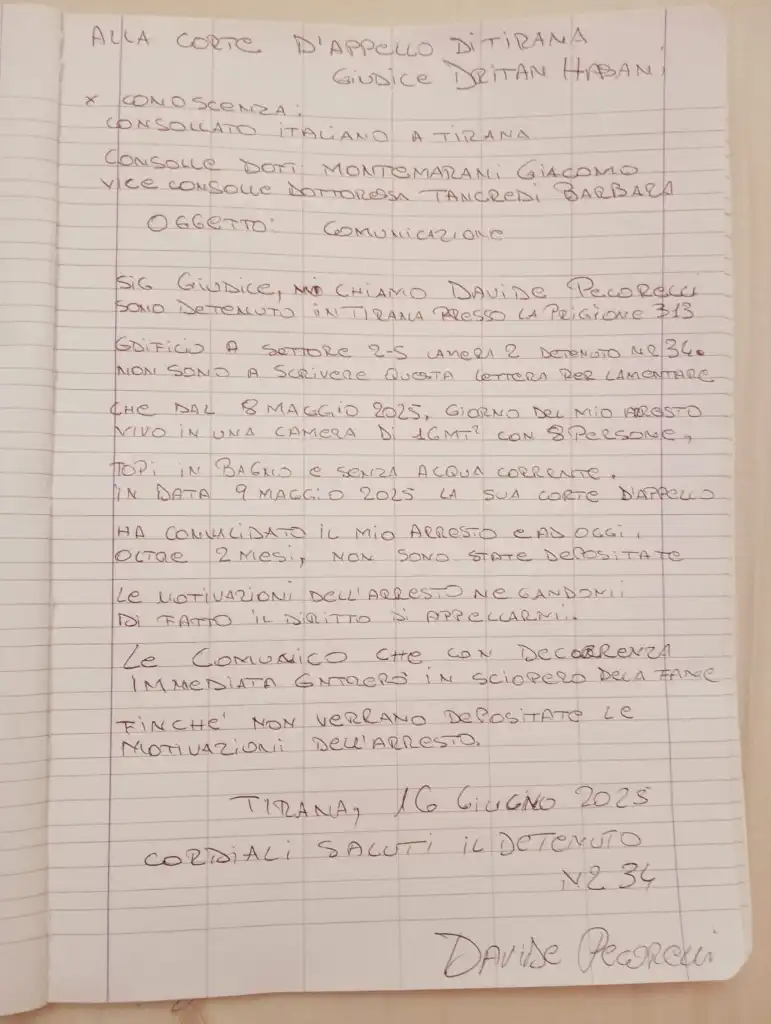 ALLA CORTE D'APPELLO DI TIRANA
GIUDICE DRITAN HABANI
x CONOSCENZA:
CONSOLLATO ITALIANO A TIRANA
CONSOLLE DOTT MONTEMARANI GIACOMO
VICE CONSOLLE DOTTORESSA TANCREDI BARBARA
OGGETTO: COMUNICAZIONE
SIG GIUDICE, MI CHIAMO DAVIDE PECORELLI
SONO DETENUTO IN TIRANA PRESSO LA PRIGIONE 313
EDIFICIO A SETTORE 2-5 CAMERA 2 DETENUTO N2 34.
NON SONO A SCRIVERE QUESTA LETTERA PER LAMENTARE
CHE DAL 8 MAGGIO 2025, GIORNO DEL MIO ARRESTO
VIVO IN UNA CAMERA DI 16MT² CON 8 PERSONE,
TOPI IN BAGNO E SENZA ACQUA CORRENTE.
IN DATA 9 MAGGIO 2025 LA SUA CORTE D'APPELLO
HA CONVALIDATO IL MIO ARRESTO E AD OGGI,
OLTRE 2 MESI, NON SONO STATE DEPOSITATE
LE MOTIVAZIONI DELL'ARRESTO NEGANDOMI
DI FATTO IL DIRITTO DI APPELLARMI.
LE COMUNICO CHE CON DECORRENZA
IMMEDIATA ENTRERÒ IN SCIOPERO DELLA FAME
FINCHE' NON VERRANO DEPOSITATE LE
MOTIVAZIONI DELL'ARRESTO.
TIRANA, 16 GIUGNO 2025
CORDIALI SALUTI IL DETENUTO
N2 34
DAVIDE PECORELLI